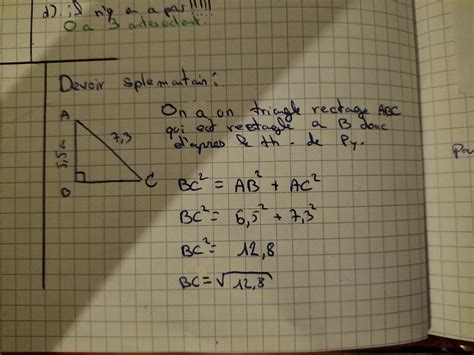 d) il n'y en a pas!!!!!
0 a 3 antecedent.
Devoir splementain:
On a un triangle rectage ABC
qui est rectagle a B donc
d'apres le th. de Py.
A
7,3
B
C
BC² = AB² + AC²
BC² = 6,5² + 7,3²
BC² = 12,8
BC = √12,8